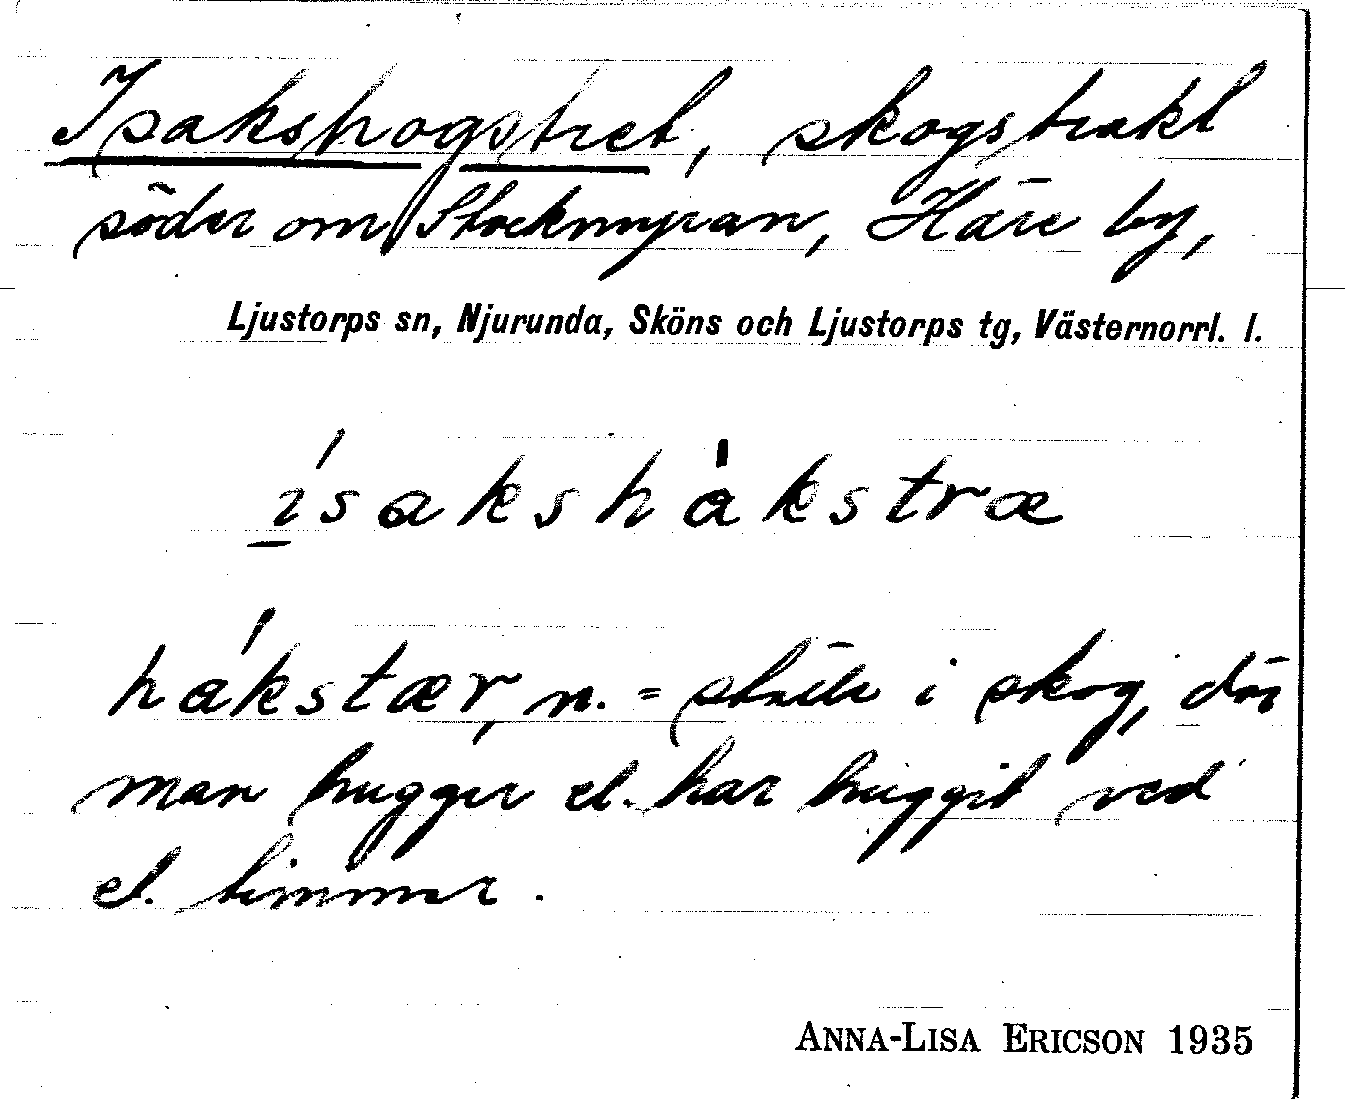 Isakshogstret, skogstrakt
söder om Stockmyran, Häre by,
Ljustorps sn, Njurunda, Sköns och Ljustorps tg, Västernorrl. l.
ísakshàkstræ
hákstær, n. = ställe i skog, där
man hugger el. har huggit ved
el. timmer.
ANNA-LISA ERICSON 1935